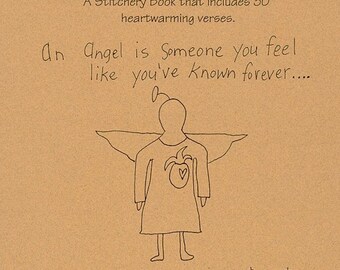 A Stitchery Book that includes 50
heartwarming verses.
An Angel is Someone you feel
like you've known forever....